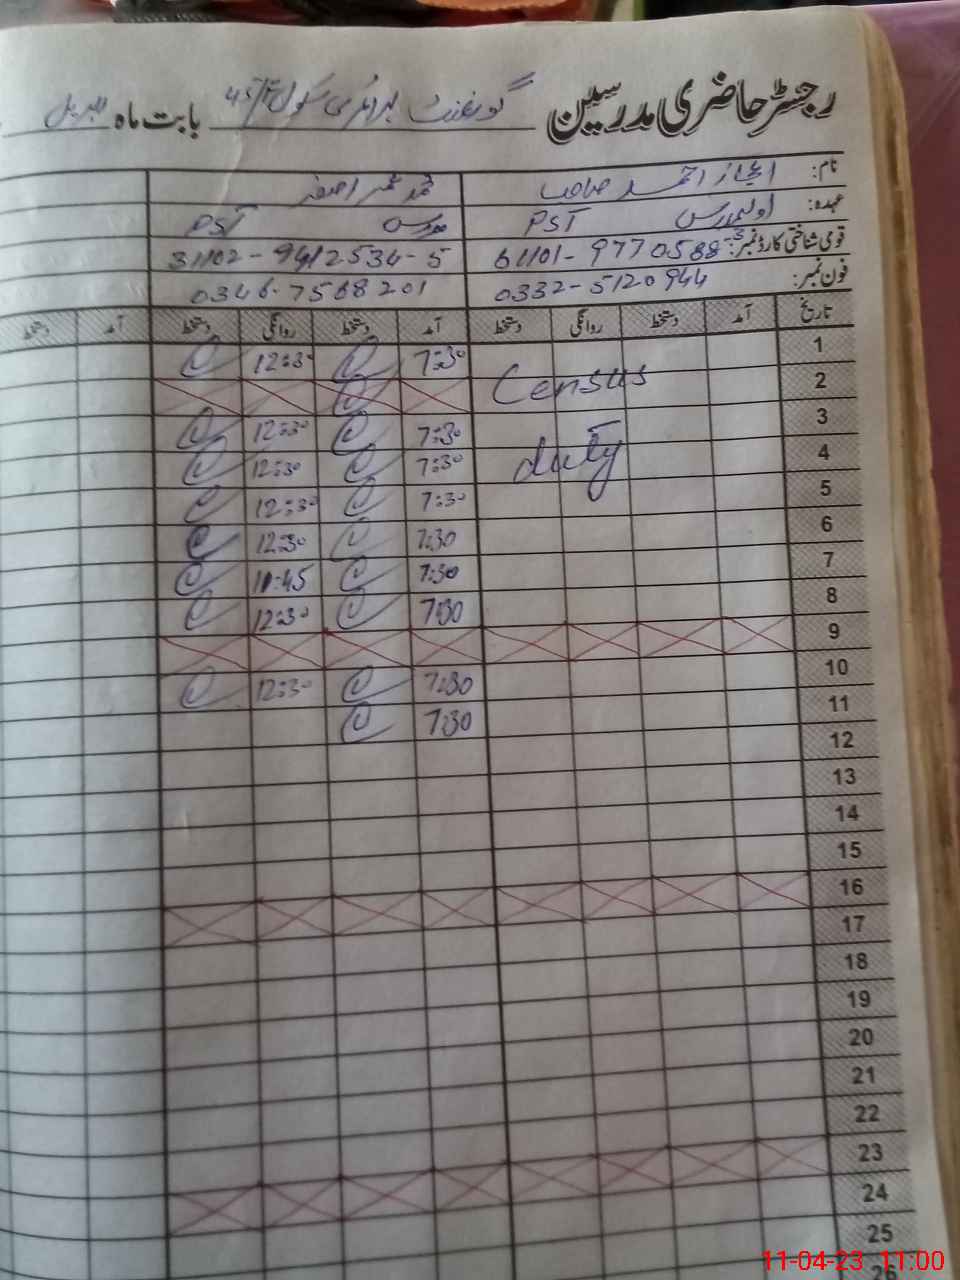 رجسٹر حاضری مدرسین گورنمنٹ پرائمری سکول بابت ماہ اپریل
نام: اعجاز احمد صاحب محمد عمر
عہدہ: اول مدرس PST مدرس PST
قومی شناختی کارڈ نمبر: 61101-9770588-3 31102-9412534-5
فون نمبر: 0332-5120944 0346-7568201
تاریخ آمد دستخط روانگی دستخط آمد دستخط روانگی دستخط آمد دستخط
1 7:30 12:30
2 Census
3 7:30 12:30
4 duty 7:30 12:30
5 7:30 12:30
6 7:30 12:30
7 7:30 11:45
8 7:30 12:30
9
10 7:30 12:30
11 7:30
12
13
14
15
16
17
18
19
20
21
22
23
24
25
26
11-04-23 11:00